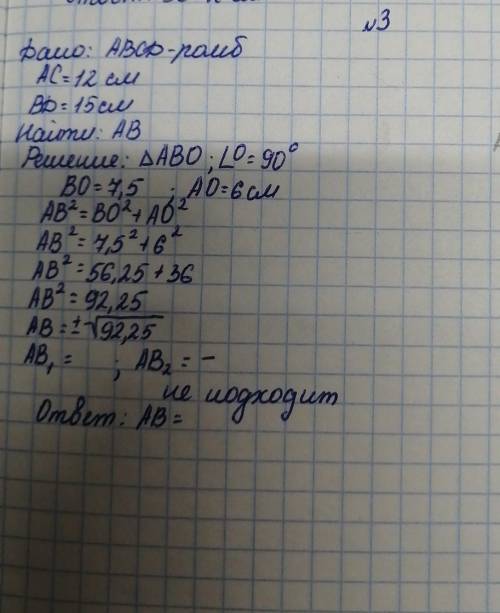 №3
Дано: ABCD-ромб
AC=12 см
BD=15 см
Найти: AB
Решение: △ABO; ∠O=90°
BO=7,5 ; AO=6 см
AB²=BO²+AO²
AB²=7,5²+6²
AB²=56,25+36
AB²=92,25
AB=±√92,25
AB₁= ; AB₂= −
не подходит
Ответ: AB=